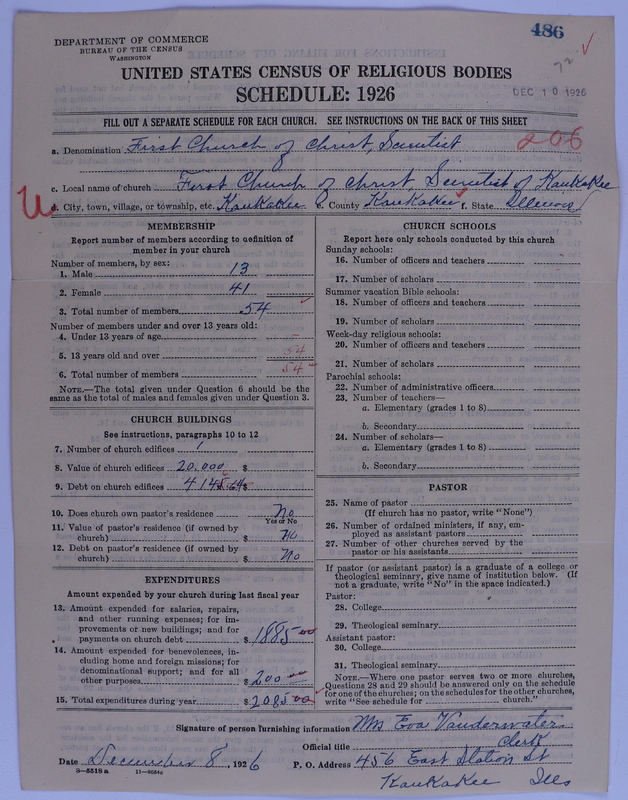 486
DEPARTMENT OF COMMERCE
BUREAU OF THE CENSUS
WASHINGTON
UNITED STATES CENSUS OF RELIGIOUS BODIES
SCHEDULE: 1926
DEC 10 1926
FILL OUT A SEPARATE SCHEDULE FOR EACH CHURCH. SEE INSTRUCTIONS ON THE BACK OF THIS SHEET
a. Denomination First Church of Christ, Scientist 206
c. Local name of church First Church of Christ, Scientist of Kankakee
d. City, town, village, or township, etc. Kankakee e. County Kankakee f. State Illinois
MEMBERSHIP
Report number of members according to definition of
member in your church
Number of members, by sex:
1. Male 13
2. Female 41
3. Total number of members 54
Number of members under and over 13 years old:
4. Under 13 years of age
5. 13 years old and over 54
6. Total number of members 54
NOTE.—The total given under Question 6 should be the
same as the total of males and females given under Question 3.
CHURCH BUILDINGS
See instructions, paragraphs 10 to 12
7. Number of church edifices 1
8. Value of church edifices 20,000 $
9. Debt on church edifices $
10. Does church own pastor's residence No
Yes or No
11. Value of pastor's residence (if owned by
church) $ No
12. Debt on pastor's residence (if owned by
church) $ No
EXPENDITURES
Amount expended by your church during last fiscal year
13. Amount expended for salaries, repairs,
and other running expenses; for im-
provements or new buildings; and for
payments on church debt $ 1885.00
14. Amount expended for benevolences, in-
cluding home and foreign missions; for
denominational support; and for all
other purposes $ 200.00
15. Total expenditures during year $ 2085.00
CHURCH SCHOOLS
Report here only schools conducted by this church
Sunday schools:
16. Number of officers and teachers
17. Number of scholars
Summer vacation Bible schools:
18. Number of officers and teachers
19. Number of scholars
Week-day religious schools:
20. Number of officers and teachers
21. Number of scholars
Parochial schools:
22. Number of administrative officers
23. Number of teachers—
a. Elementary (grades 1 to 8)
b. Secondary
24. Number of scholars—
a. Elementary (grades 1 to 8)
b. Secondary
PASTOR
25. Name of pastor
(If church has no pastor, write "None")
26. Number of ordained ministers, if any, em-
ployed as assistant pastors
27. Number of other churches served by the
pastor or his assistants
If pastor (or assistant pastor) is a graduate of a college or
theological seminary, give name of institution below. (If
not a graduate, write "No" in the space indicated.)
Pastor:
28. College
29. Theological seminary
Assistant pastor:
30. College
31. Theological seminary
NOTE.—Where one pastor serves two or more churches,
Questions 28 and 29 should be answered only on the schedule
for one of the churches; on the schedules for the other churches,
write "See schedule for church."
Signature of person furnishing information Mrs Eva Vanderwater
Official title Clerk
Date December 8, 1926 P. O. Address 456 East Station St
Kankakee Ills
8—5518 a